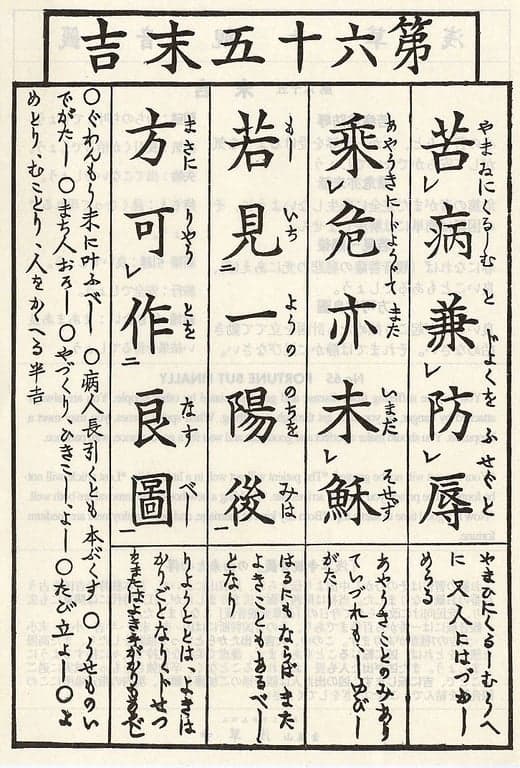 第六十五末吉
やまゐにくるしむと ぢよくをふせぐと
苦レ病兼防レ辱
やまひにくるしむうへ
に又人にはづかし
めらるる
あやうきにじようじてま いまだ そせず
乘レ危亦未レ穌
あやうきことのみあり
ていづれも
がたし
もし いち ようの のちを みは
若見二一陽後一
はるにもならばまた
よきこともあるべし
となり
まさに りやう とを なす べし
方可レ作二良圖一
りようととは、よきは
かりごとなり
〇ぐわんもう末に叶ふべし 〇病人長引くとも本ぶくす 〇うせものい
でがたし 〇まち人おそし 〇やづくりひきこしよし 〇たび立よし 〇よ
めとり、むことり、人をかゝへる半吉